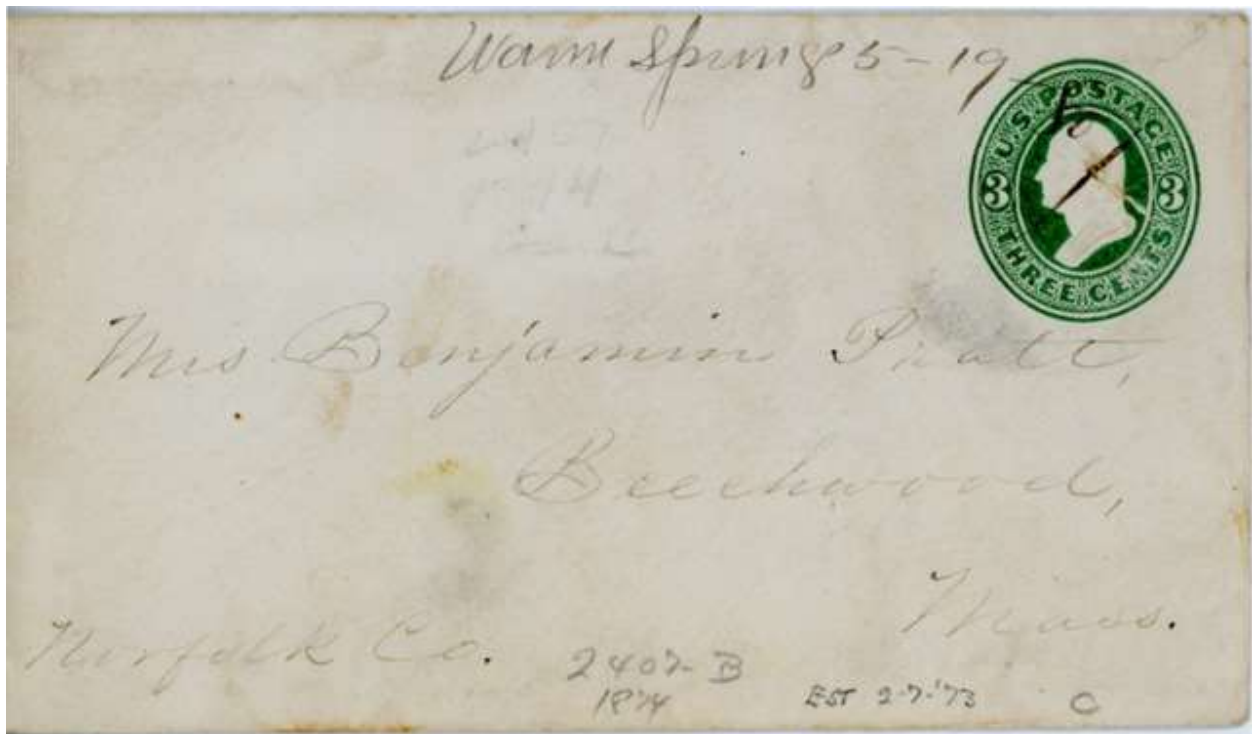 Warm Springs 5-19
U.S. POSTAGE
3 3
THREE CENTS
Mrs Benjamin Pratt,
Beechwood,
Mass.
Norfolk Co.
2402-B
1874
EST 2-7-'73
C